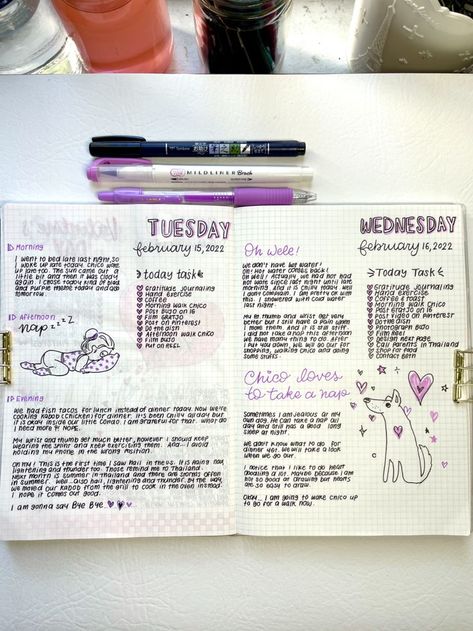 Tombow
MILDLINER Brush
TUESDAY
february 15, 2022
Morning
I went to bed late last night, so
I woke up late today. Chico woke
up late too. The sun came out a
little bit and then it was cloudy
again. I chose today kind of black
and purple maybe today and
tomorrow.
Today Task
Gratitude Journaling
Hand exercise
Coffee
Morning walk Chico
Post Bujo on IG
Film
Post on Pinterest
Do the dish
Afternoon walk Chico
Film Bujo
Put on Reel
Afternoon
nap zzzZ
Evening
We had fish tacos for lunch instead of dinner today. Now we're
cooking kabob (chicken) for dinner. It's been chilly all day but
it is okay inside our little condo. I am grateful for that. What do
I need more?! Nope.
My wrist and thumb get much better, however I should keep
wearing the splint and keep exercising them. And... avoid
holding my phone in the wrong position.
Oh my! This is the first time I saw hail in the US. It is raining now,
lightening and thunder too. Those remind me to Thailand.
Next month is summer in Thailand and there are storms often
in summer. Well.. also hail, lightening and thunder. By the way,
we moved our kabob from the grill to cook in the oven instead.
I hope it comes out good.
I am gonna say Bye Bye..
WEDNESDAY
february 16, 2022
Oh well!
We don't have hot water!
Oh! Hot water comes back!
Oh well! Actually, we had not had
hot water since last night until late
morning. And it is chilly today. Well
I don't complain. I am pretty ok with
this. I showered with cold water
last night.
My thumb and wrist get very
better but I still have a pain when
I move them. And it is still stiff.
I did not take a nap this afternoon.
We have many thing to do. After
I put Bujo down, we will go out for
shopping, walking Chico and going
some stuffs.
Today Task
Gratitude Journaling
Hand exercise
Coffee & toast
Morning walk Chico
Post on IG
Post video on Pinterest
Do the dish
Photograph Bujo
Film Reel
Design next page
Call parents in Thailand
Shop for food
Contact Beth
Chico loves
to take a nap
Sometimes I am jealous at my
own dog. He can nap all
day and still has a good long
sleep at night.
We don't know what to do for
dinner yet. We will take a look
when we go out.
I notice that I like to do heart
doodling a lot. Maybe because I am
not so good at drawing but hearts
are so easy to draw.
Okay... I am going to wake Chico up
to go for a walk now.